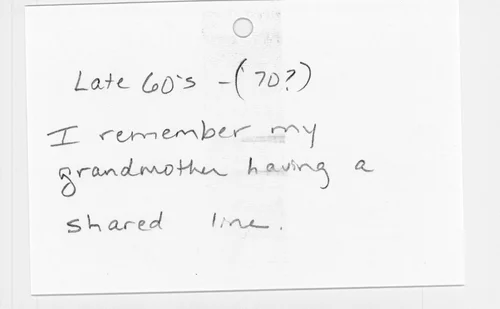 Late 60's - ('70?)
I remember my
grandmother having a
shared line.